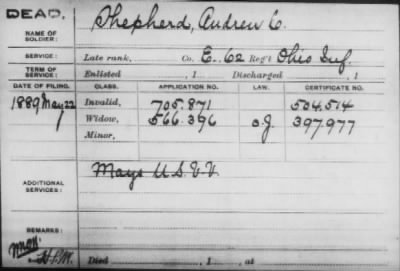 DEAD.
NAME OF SOLDIER: Shepherd, Andrew C.
SERVICE: Late rank, Co. E. 62 Reg't Ohio Inf.
TERM OF SERVICE: Enlisted , 1 Discharged , 1
DATE OF FILING. CLASS. APPLICATION NO. LAW. CERTIFICATE NO.
1889 May 22 Invalid, 705.871 504.514
Widow, 566.396 397977
Minor,
ADDITIONAL SERVICES: Mays U.S.V.V.
REMARKS:
H.P.W.
Died , 1 , at